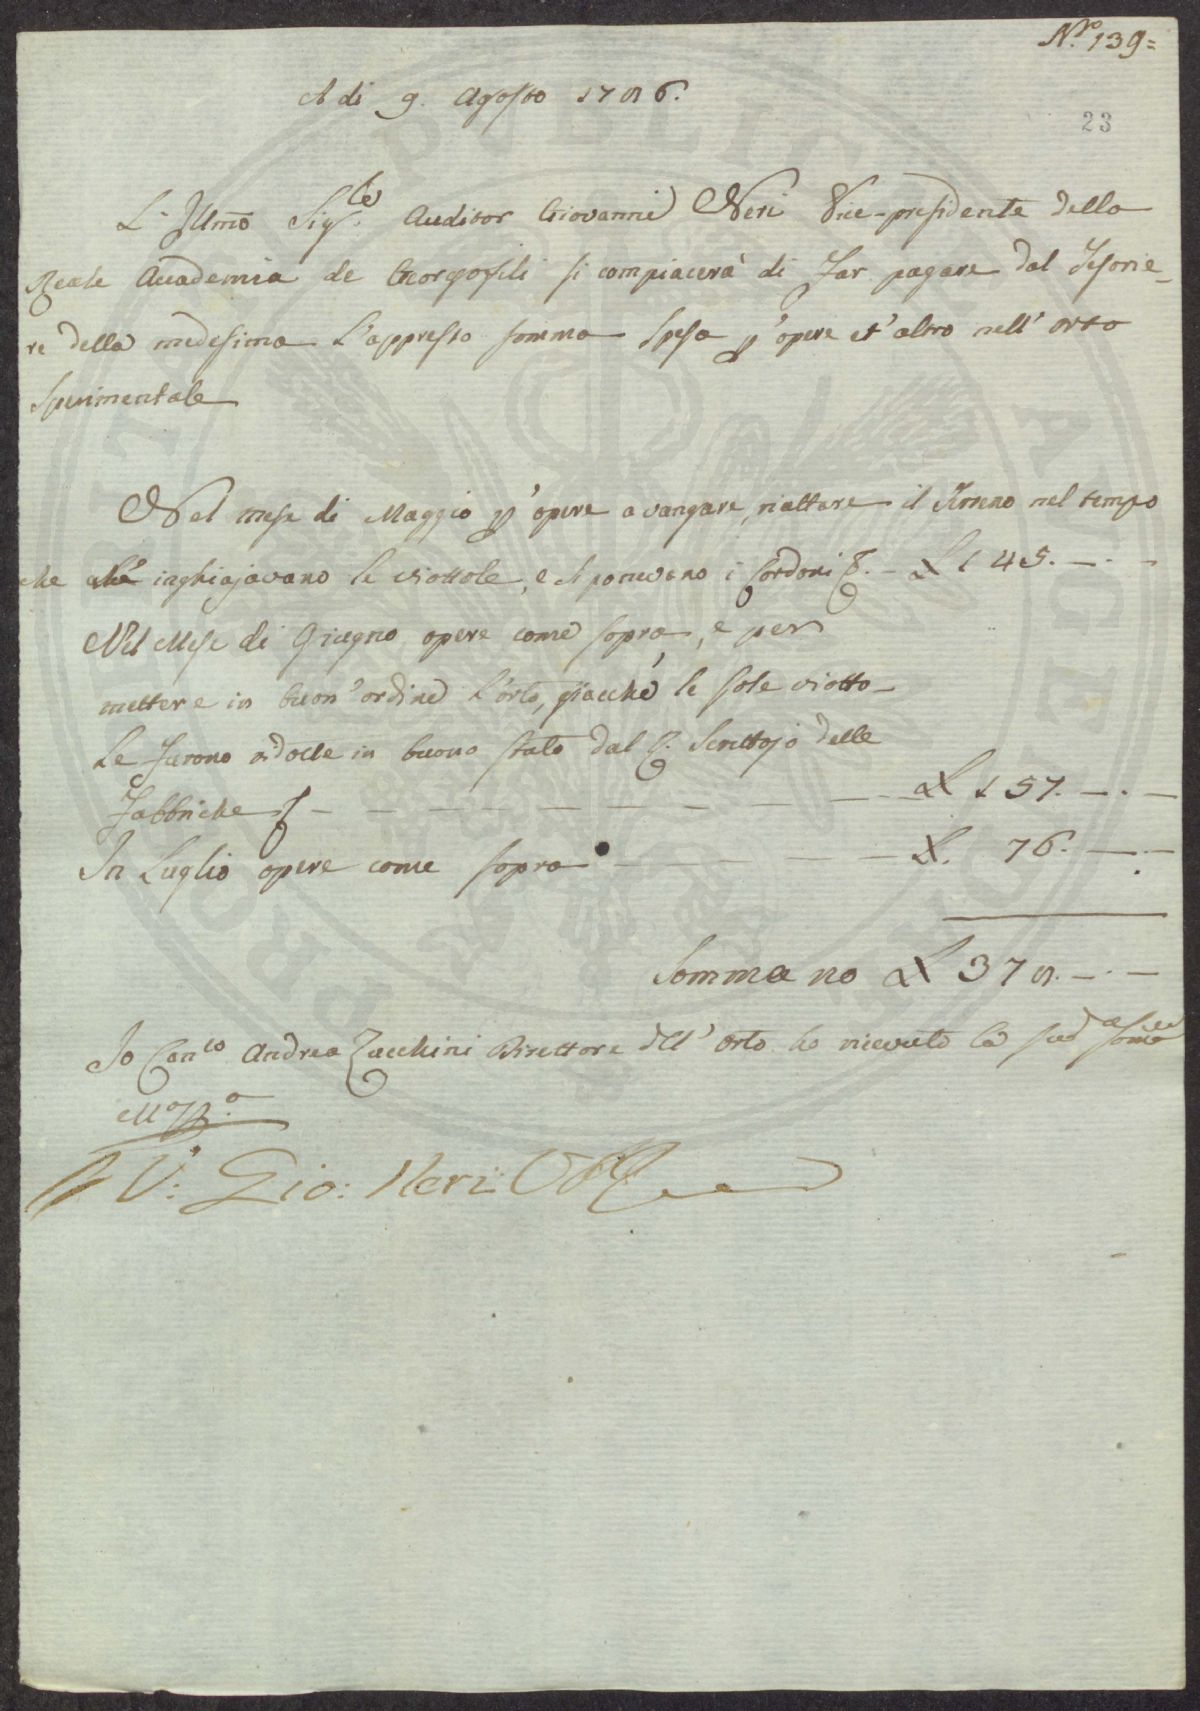 N.ro 139=
A di 9. Agosto 1786.
23
L' Illmõ Sig.re Auditor Giovanni Neri Vice-presidente della
Reale Accademia de Georgofili si compiacerà di far pagare dal Tesorie-
re della medesima L'appresso somma spesa p' opere et' altro nell' orto
Sperimentale
Nel mese di Maggio p' opere a vangare, riattare il Terreno nel tempo
che inghiajavano le viottole, e si ponevano i Cordoni £ 145. - . -
Nel Mese di Giugno opere come sopra, e per
mettere in buon' ordine L'orto, giacchè le sole viotto-
Le furono ridotte in buono stato dal Scrittojo delle
Fabbriche £ 157. - . -
In Luglio opere come sopra £. 76. - . -
Sommano £ 378. - . -
Io Can.co Andrea Zucchini Direttore dell' Orto ho ricevuto la sud.a somma
M.o p.o
V: Gio: Neri